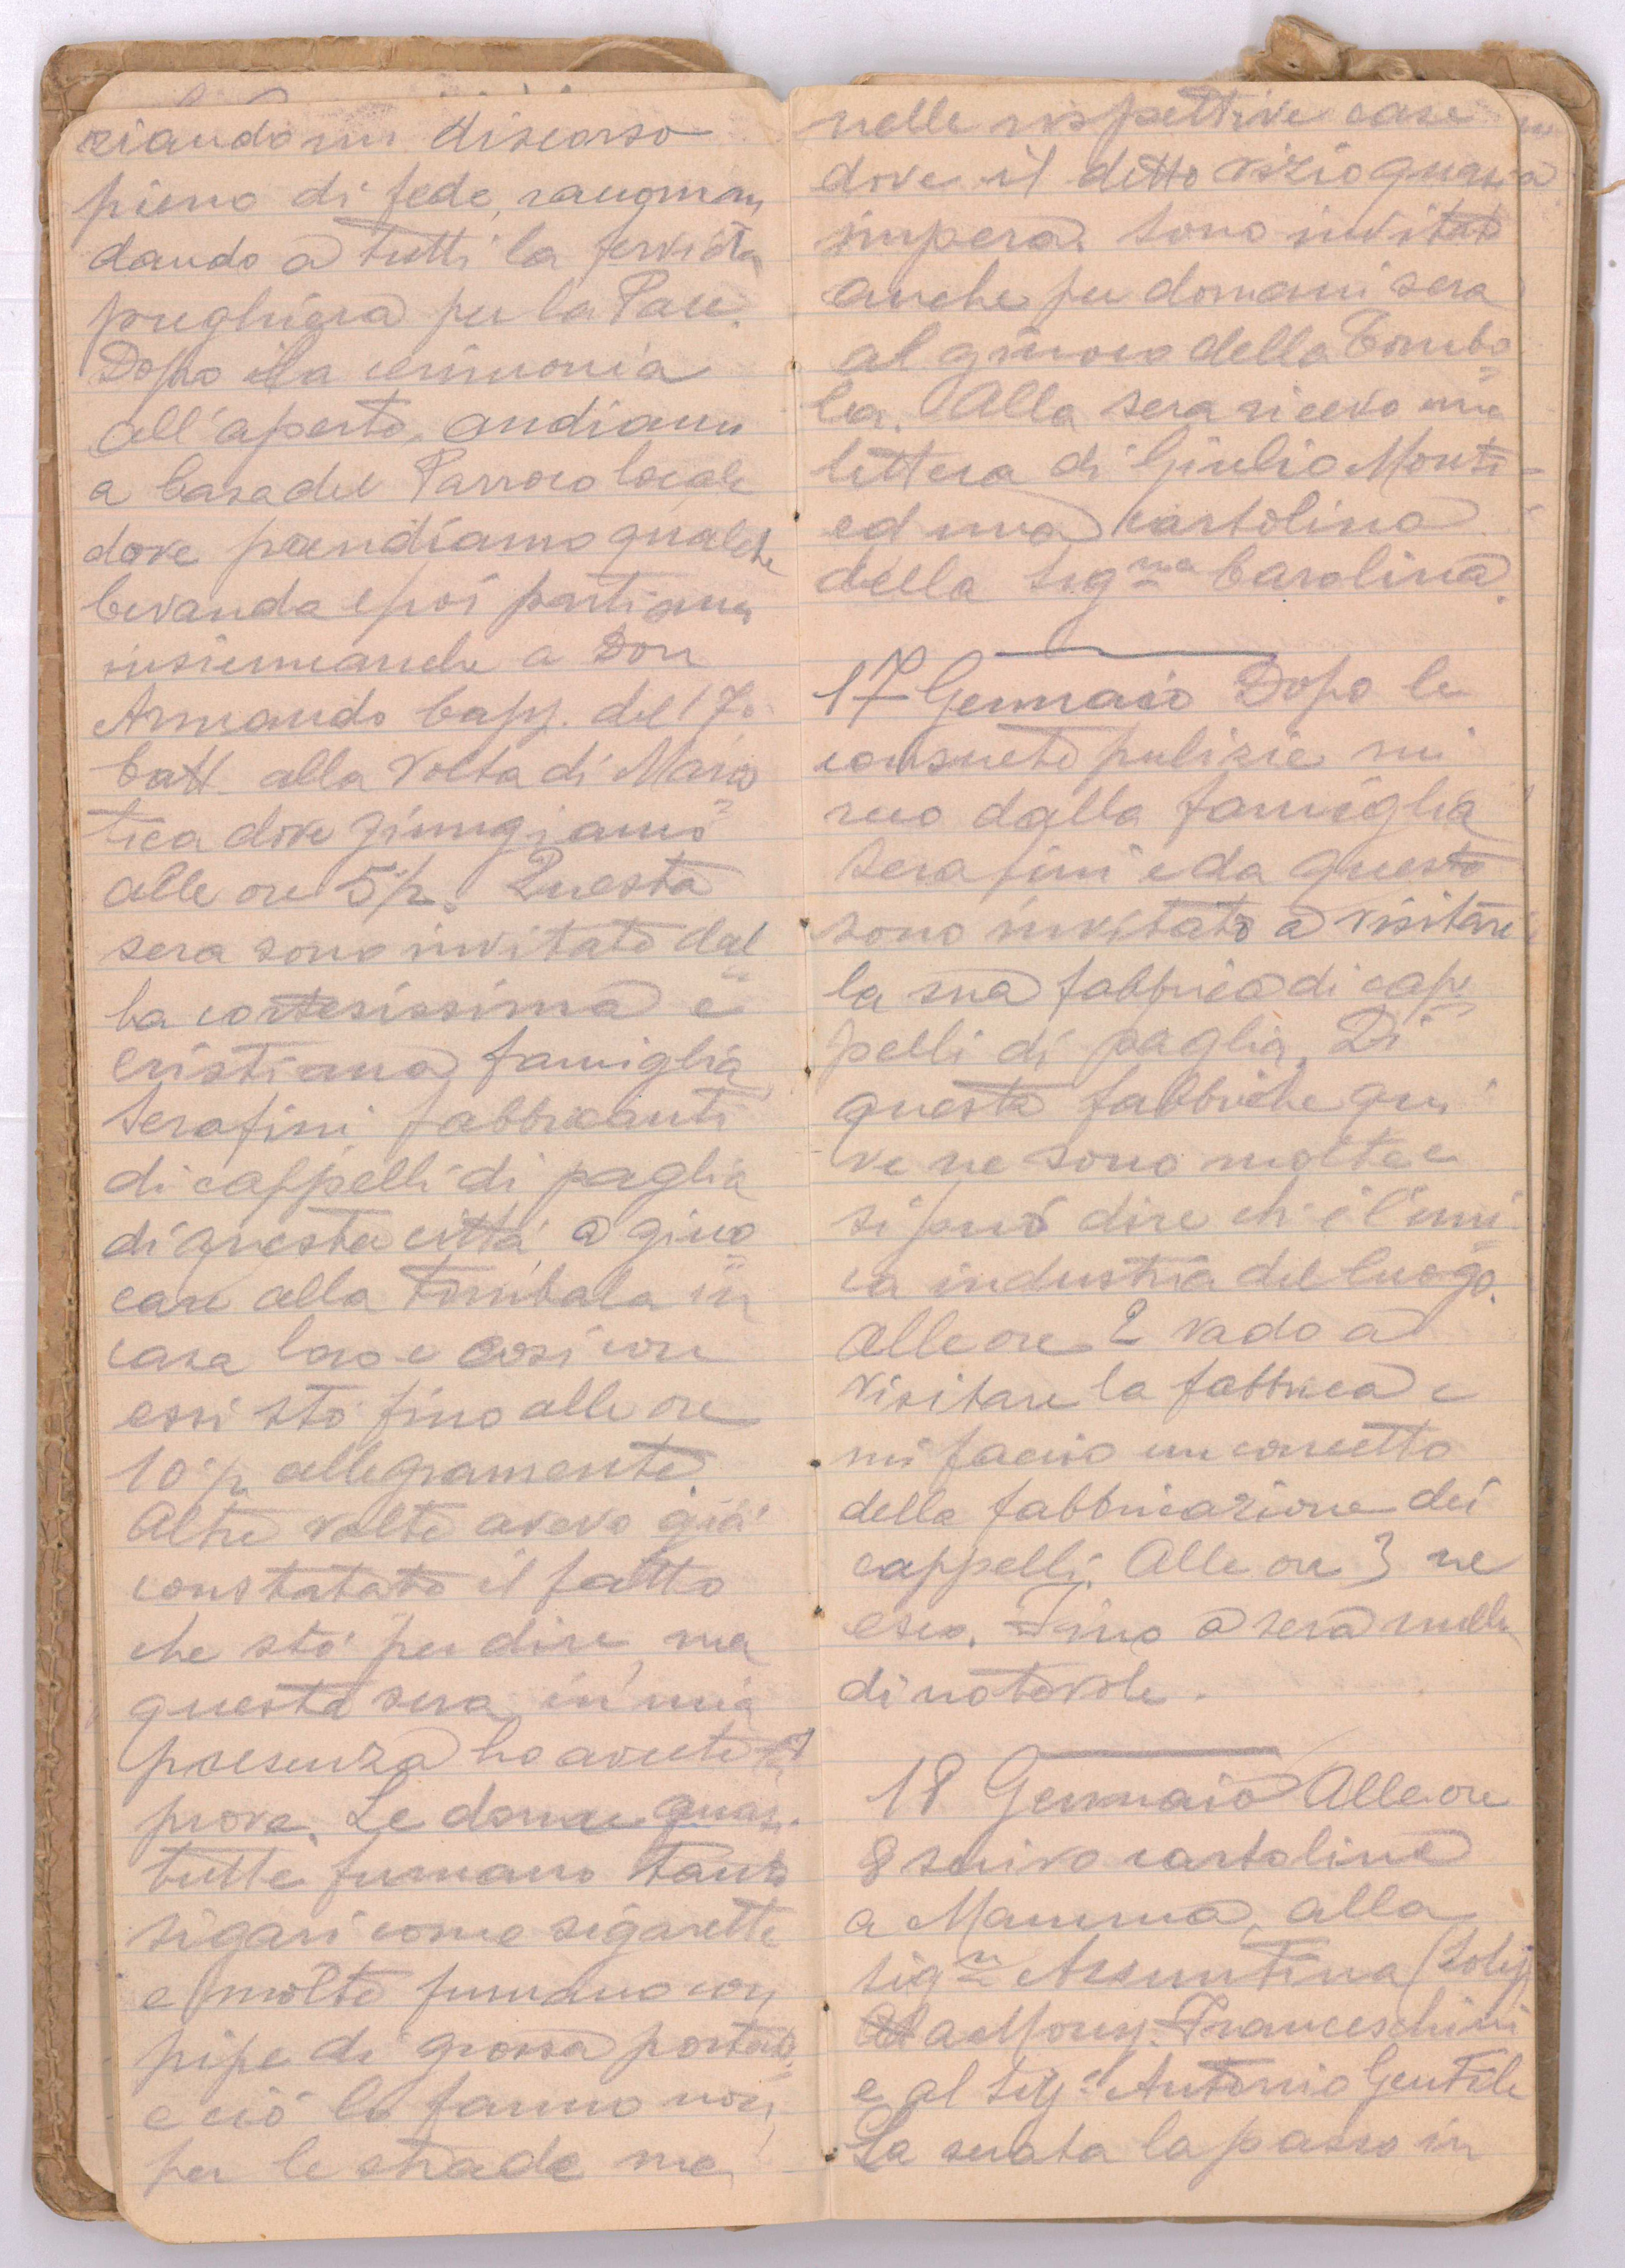 ziando un discorso
pieno di fede, racoman
dando a tutti la fervida
preghiera per la Pace.
Dopo la cerimonia
all'aperto, andiamo
a Casa del Parroco locale
dove prendiamo qualche
bevanda e poi partiamo
insieme anche a Don
Armando Capp. del 17º
Batt. alla volta di Maros
tica dove giungiamo
alle ore 5 p. Questa
sera sono invitato dal
la cortesissima e
cristiana famiglia
Serafini fabbricanti
di cappelli di paglia
di questa città a giuo
care alla Tombala in
casa loro e così con
essi stò fino alle ore
10 p. allegramente.
Altre volte avevo già
constatato il fatto
che stò per dire, ma
questa sera in mia
presenza ho avute
prove. Le donne quasi
tutte fumano tanto
sigari come sigarette
e molte fumano con
pipe di grossa portata
e ciò lo fanno non
per le strade ma
nelle rispettive case
dove il detto vizio quasi
impera. Sono invitato
anche per domani sera
al giuoco della Tombo
la. Alla sera ricevo una
lettera di Giulio Monti
ed una cartolina
della Signa Carolina.
17 Gennaio Dopo le
consuete pulizie mi
reco dalla famiglia
Serafini e da questo
sono invitato a visitare
la sua fabbrica di cap
pelli di paglia. Di
queste fabbriche qui
ve ne sono molte e
si può dire ch'è l'uni
ca industria del luogo.
Alle ore 2 vado a
visitare la fabbrica e
mi faccio un concetto
della fabbricazione dei
cappelli. Alle ore 3 ne
esco. Fino a sera nulla
di notevole.
18 Gennaio Alle ore
8 scrivo cartoline
a Mamma, alla
Sigra Assuntina
a Mons. Franceschini
e al Sigr Antonio Gentile
La serata la passo in